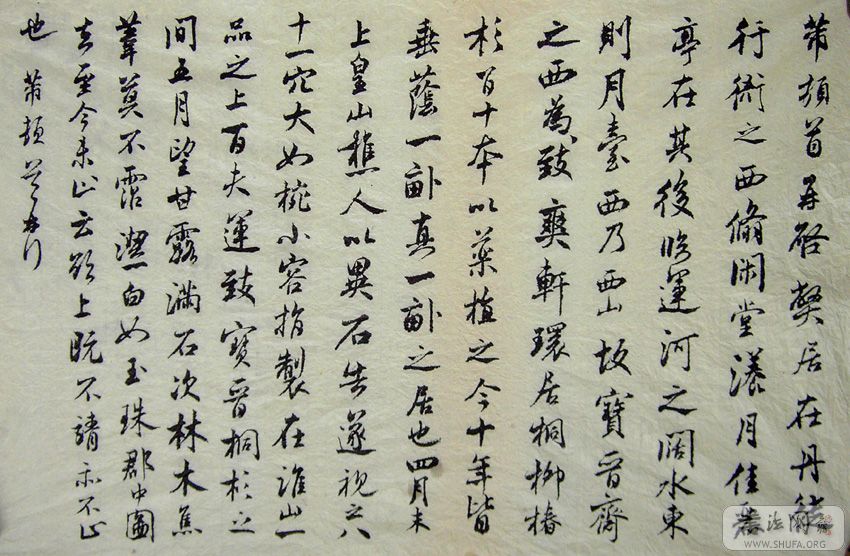 芾頓首再啓獘居在丹徒
行衙之西翛閑堂漾月佳麗
亭在其後臨運河之闊水東
則月臺西乃西山故寶晉齋
之西為致爽軒環居桐柳椿
杉百十本以藥植之今十年皆
垂蔭一畝真一畝之居也四月末
上皇山樵人以異石告遂視之八
十一穴大如椀小容指製在淮山一
品之上百夫運致寶晉桐杉之
間五月望甘露滿石次林木焦
葦莫不霑潔白如玉珠郡中圖
去至今未止云欲上既不請亦不止
也 芾頓首
書法網
WWW.SHUFA.ORG